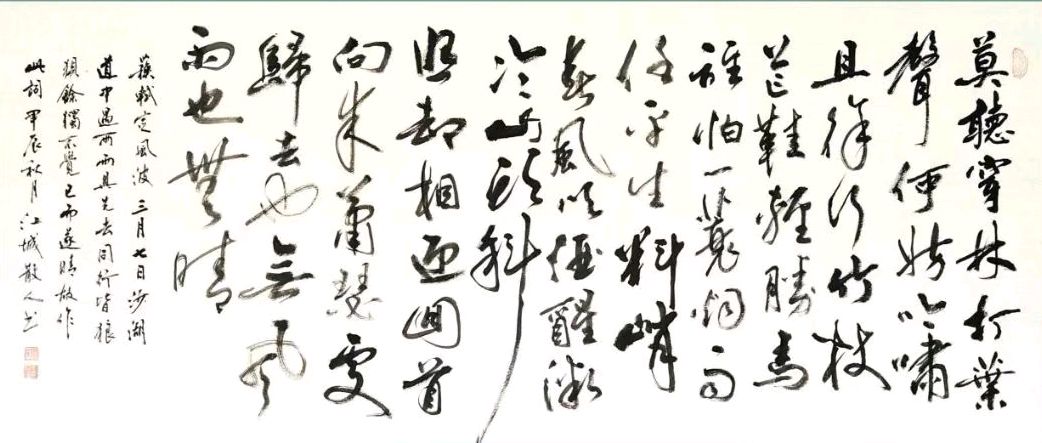 莫聽穿林打葉
聲何妨吟嘯
且徐行竹杖
芒鞋輕勝馬
誰怕一蓑烟雨
任平生料峭
春風吹酒醒微
冷山頭斜
照却相迎回首
向來蕭瑟處
歸去也無風
雨也無晴
蘇軾定風波 三月七日沙湖
道中遇雨雨具先去同行皆狼
狽餘獨不覺已而遂晴故作
此詞 甲辰秋月 江城散人书